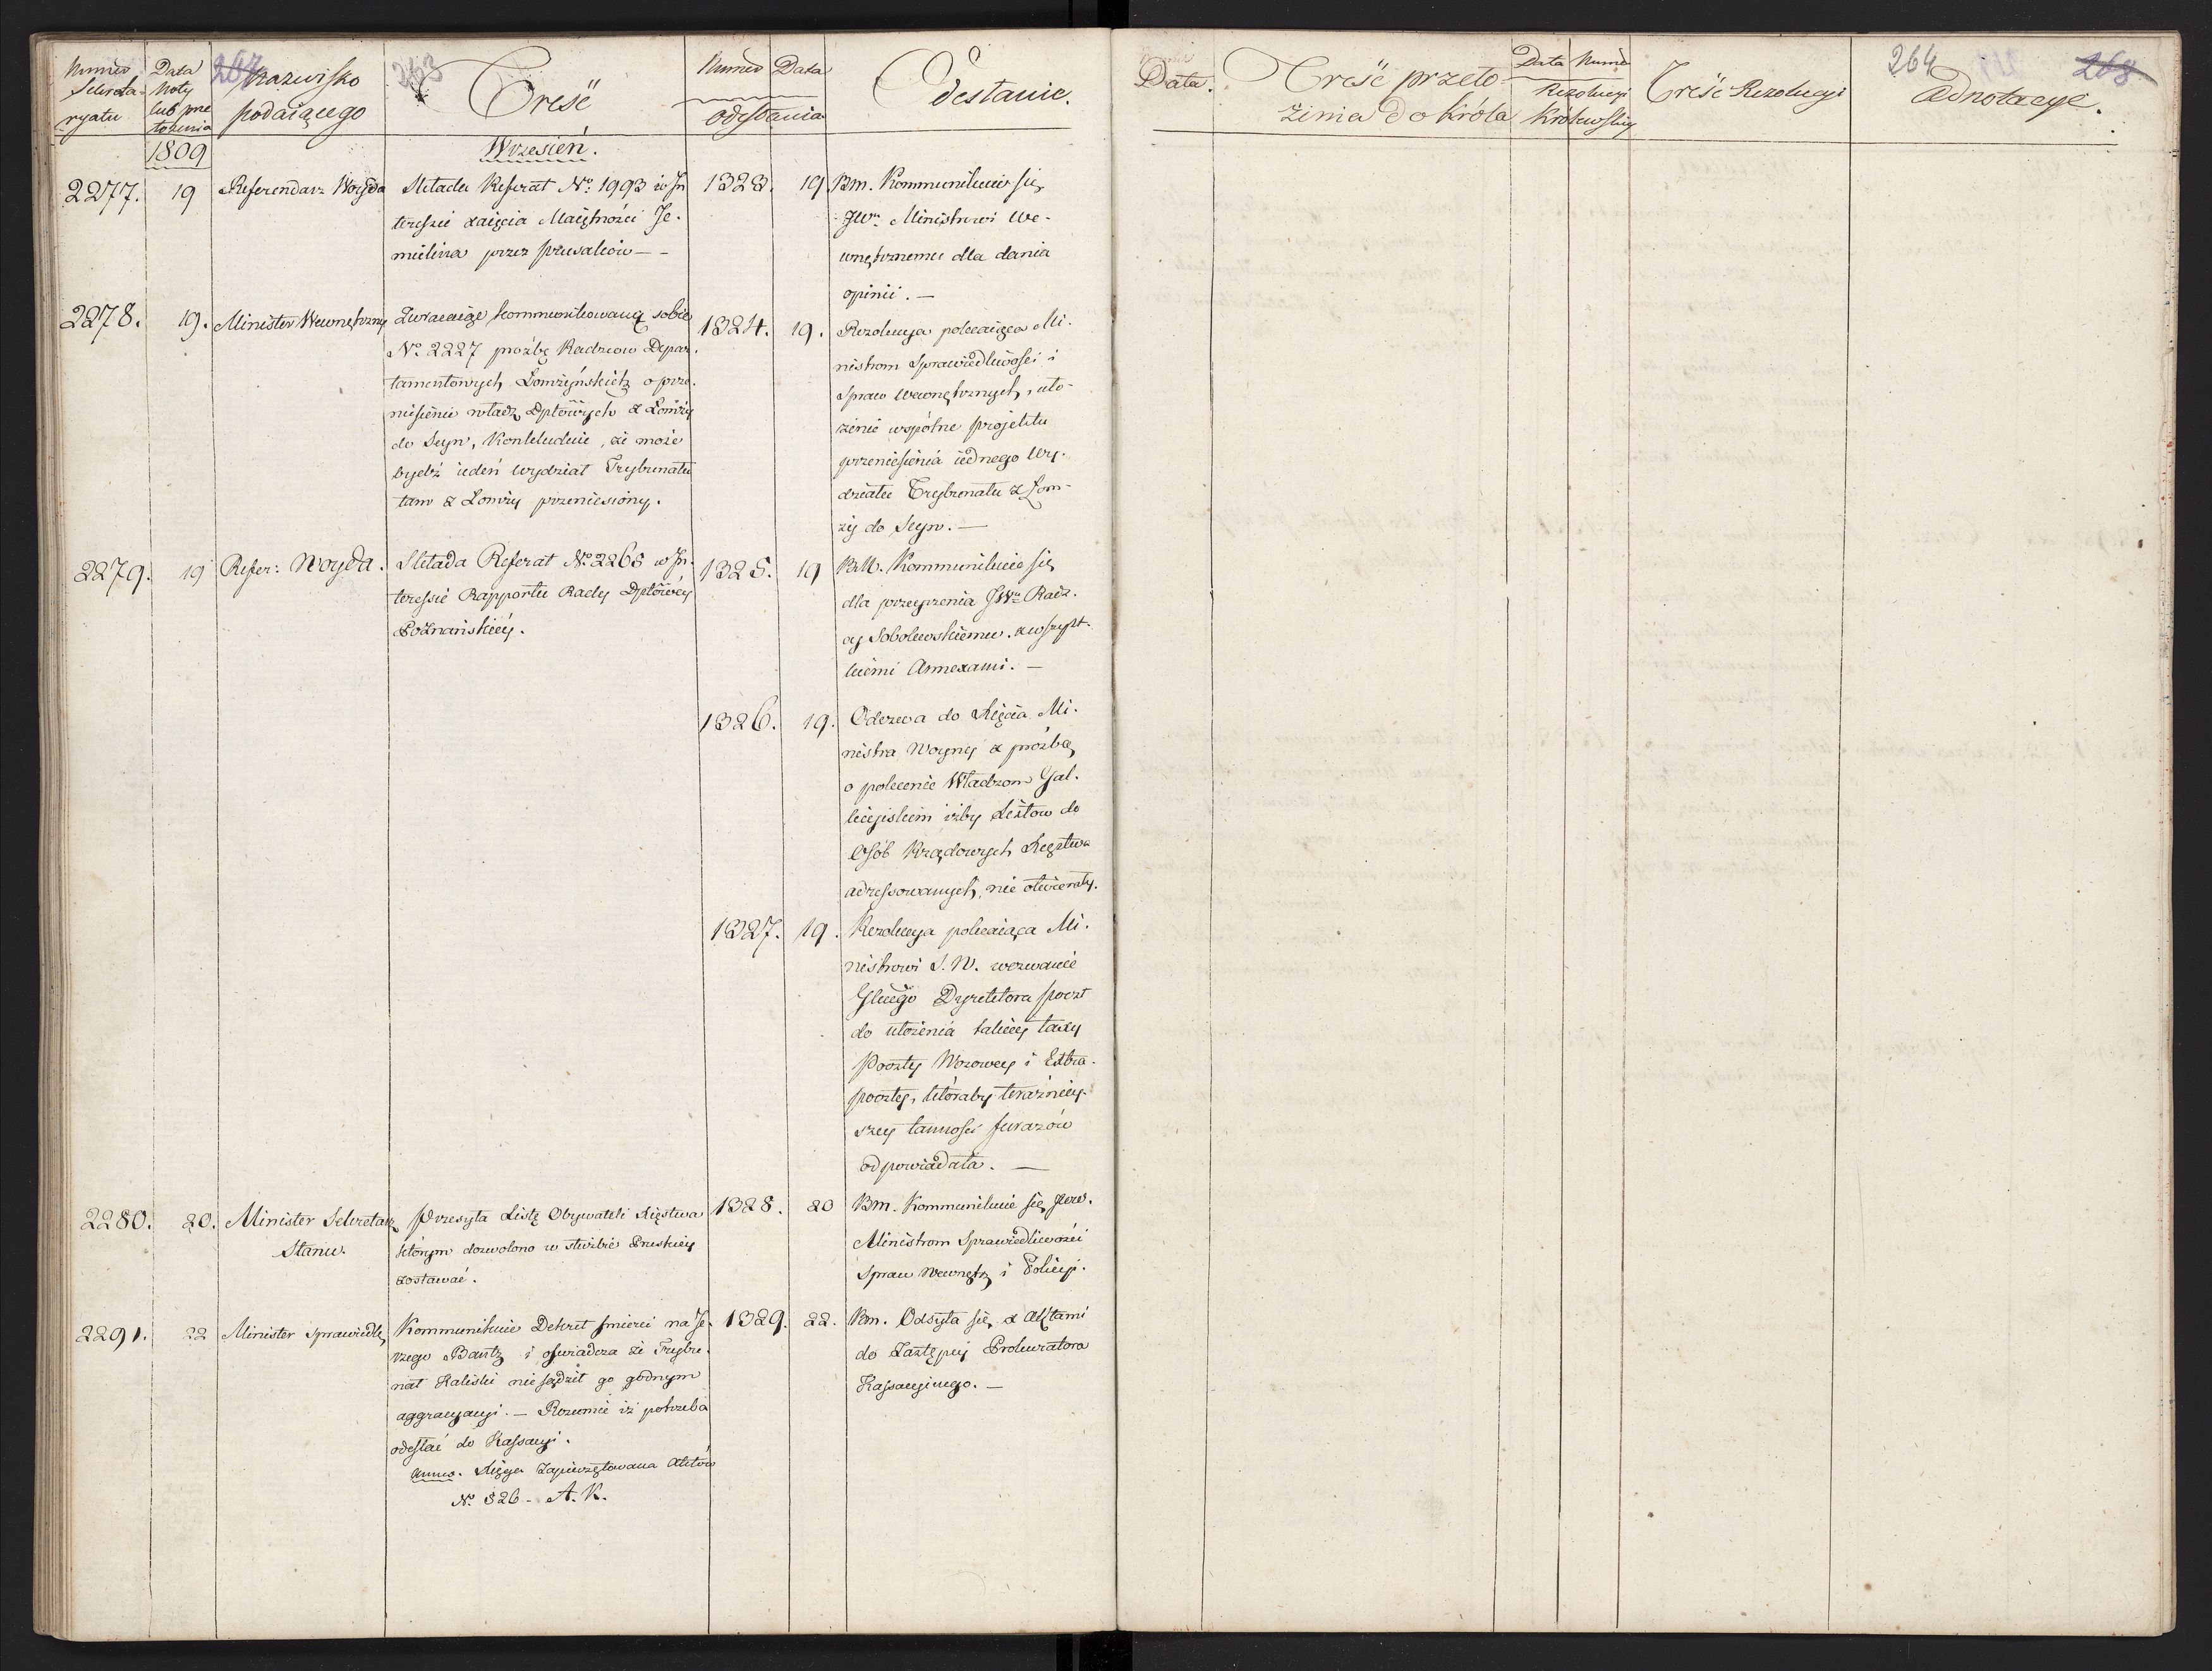 Numer Sekreta-ryatu
Data Noty lub prze łożenia
Nazwisko podaiącego
263
Treść
Numer Data
odesłania
Odesłanie.
1809
Wrzesień.
2277. 19 Referendarz Woyda
Składa Referat No: 1993 w In
teressie zaięcia Maiętności Je-
mielina przez prusaków — -
1323. 19.
Bm. Kommunikuie się
JWu Ministrowi We-
wnętrznemu dla dania
opinii. —
2278. 19. Minister Wewnętrzny
Zwracaiąc kommunikowaną sobie
No 2227 proźbę Radzców Depar-
tamentowych Łomżyńskich o prze-
niesienie władz Dptowych z Łomży
do Seyn, Konkluduie, że może
bydź ieden wydział Trybunału
tam z Łomży przeniesiony.
1324. 19.
Rezolucya polecaiąca Mi-
nistrom Sprawiedliwości i
Spraw Wewnętrznych, uło-
żenie wspólne projektu
przeniesienia iednego Wy-
działu Trybunału z Łom-
ży do Seyn. —
2279. 19 Refer: Woyda.
Składa Referat No. 2265 w In-
teressie Rapportu Rady Dptowéy
Poznańskiéy.
1325. 19
BM. Kommunikuie się
dla przeyrzenia JWu Radz-
cy Sobolewskiemu. z wszyst-
kiemi Annexami. —
1326. 19.
Odezwa do Xięcia Mi-
nistra Woyny z proźbą
o polecenie Władzom Gal-
licyiskim iżby Listow do
Osób Rządowych Xięstwa
adressowanych, nie otwierały.
1327. 19.
Rezolucya polecaiąca Mi-
nistrowi S. W. wezwanie
Głłnego Dyrektora poczt
do ułożenia takiéy taxy
Poczty Wozowey i Extra-
poczty, któraby teraźniey-
szey tanności furażów
odpowiadała. —
2280. 20. Minister Sekretarz
Stanu.
Przesyła Listę Obywateli Xięstwa
którym dozwolono w służbie Pruskiey
zostawać.
1328. 20
Bm. Kommunikuie się JWW.
Ministrom Sprawiedliwości
Spraw Wewnętrz i Policyi.
2291. 22 Minister Sprawiedli
Kommunikuie Dekret śmierci na Je-
rzego Bantz i oświadcza że Trybu-
nał Kaliski nie sądził go godnym
aggracyacyi. — Rozumie iż potrzeba
odesłać do Kassacyi.
Annex. Xięga Zapieczętowana Aktów
No. 326 - A. K.
1329. 22.
Bm. Odsyła się z Aktami
do Zastępcy Prokuratora
Kassacyinego. —
Data.
Treść przeło-
żenia do Króla
Data Numer
Rezolucyi
Królewskiy
Treść Rezolucyi
264
268
Adnotacye.